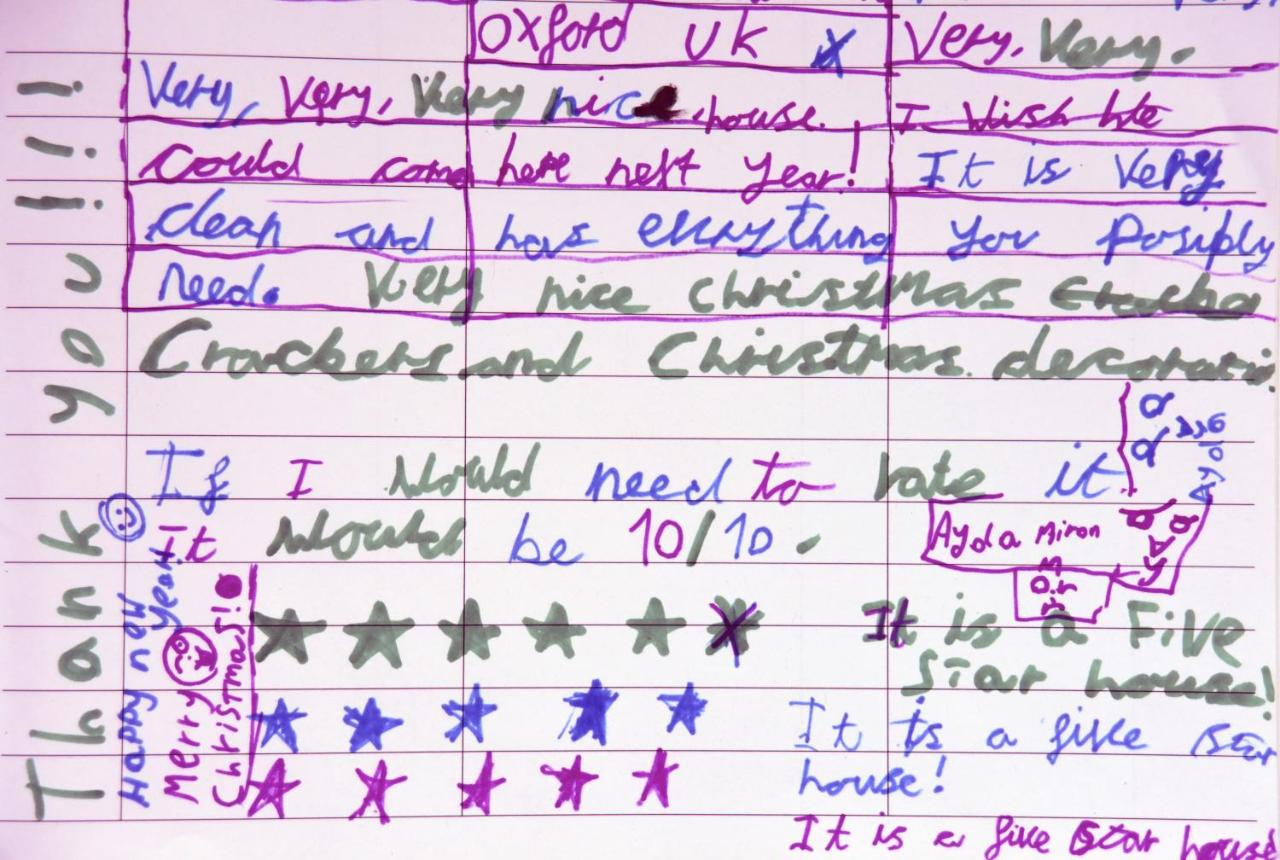 Oxford UK
Very, Very.
Very, Very, Very nice house. I wish we
could come here neft year! It is Very
clean and has evrything you posiply
need. Very nice christmas
Crackers and Christmas decorati
If I would need to rate it
it would be 10/10.
Ayda Miron
It is a Five
Star house!
It is a five star
house!
It is a five star house
Thank you!!!
Happy new year!
Merry Christmas!